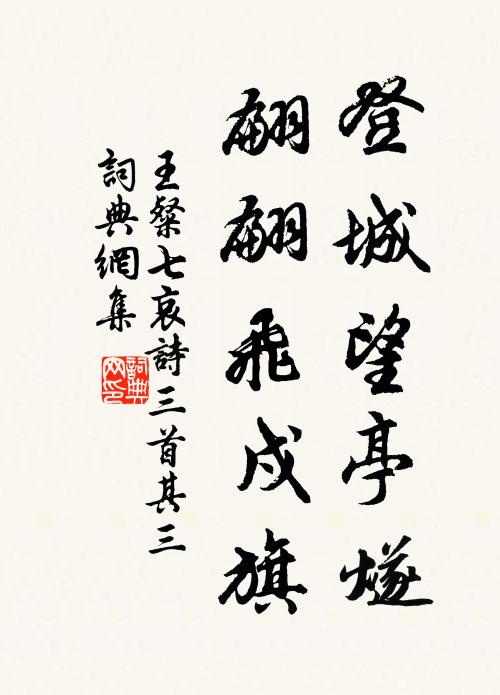 登城望亭燧
翩翩飛戍旗
王粲七哀詩三首其三
詞典網集
詞典网印